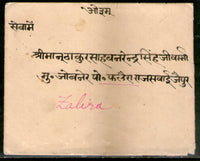 ओ३म्
सेवामें
श्रीमान् ठाकुर साहब नरेन्द्र सिंह जी
मु० जोबनेर पो० फलेरा राज सवाई जैपुर
Zalina